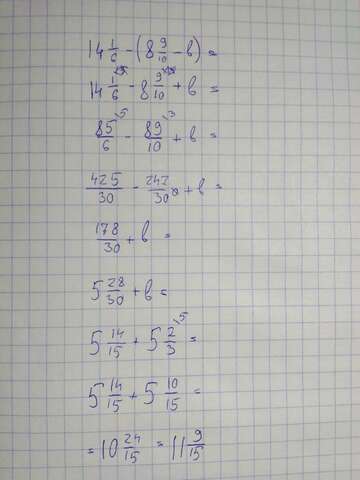 14 1/6 - (8 9/10 - b) =
14 1/6 - 8 9/10 + b =
85/6 \5 - 89/10 \3 + b =
425/30 - 242/30 + b =
178/30 + b =
5 28/30 + b =
5 14/15 + 5 2/3 \5 =
5 14/15 + 5 10/15 =
= 10 24/15 = 11 9/15